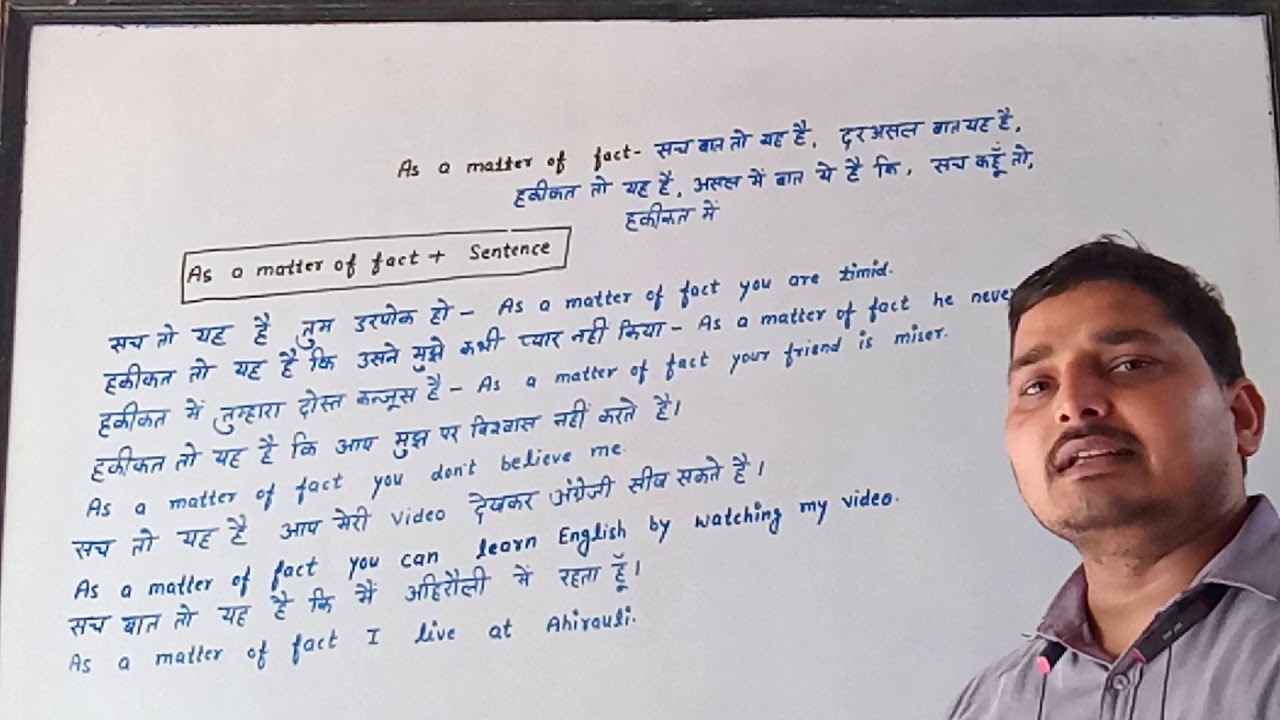 As a matter of fact- सच बात तो यह है, दरअसल बात यह है,
हकीकत तो यह है, असल में बात ये है कि, सच कहूँ तो,
हकीकत में
As a matter of fact + Sentence
सच तो यह है तुम डरपोक हो - As a matter of fact you are timid.
हकीकत तो यह है कि उसने मुझे कभी प्यार नहीं किया - As a matter of fact he never
हकीकत में तुम्हारा दोस्त कन्जूस है - As a matter of fact your friend is miser.
हकीकत तो यह है कि आप मुझ पर विश्वास नहीं करते है।
As a matter of fact you don't believe me.
सच तो यह है आप मेरी video देखकर अंग्रेजी सीख सकते है।
As a matter of fact you can learn English by watching my video.
सच बात तो यह है कि मैं अहिरौली में रहता हूँ।
As a matter of fact I live at Ahirauli.